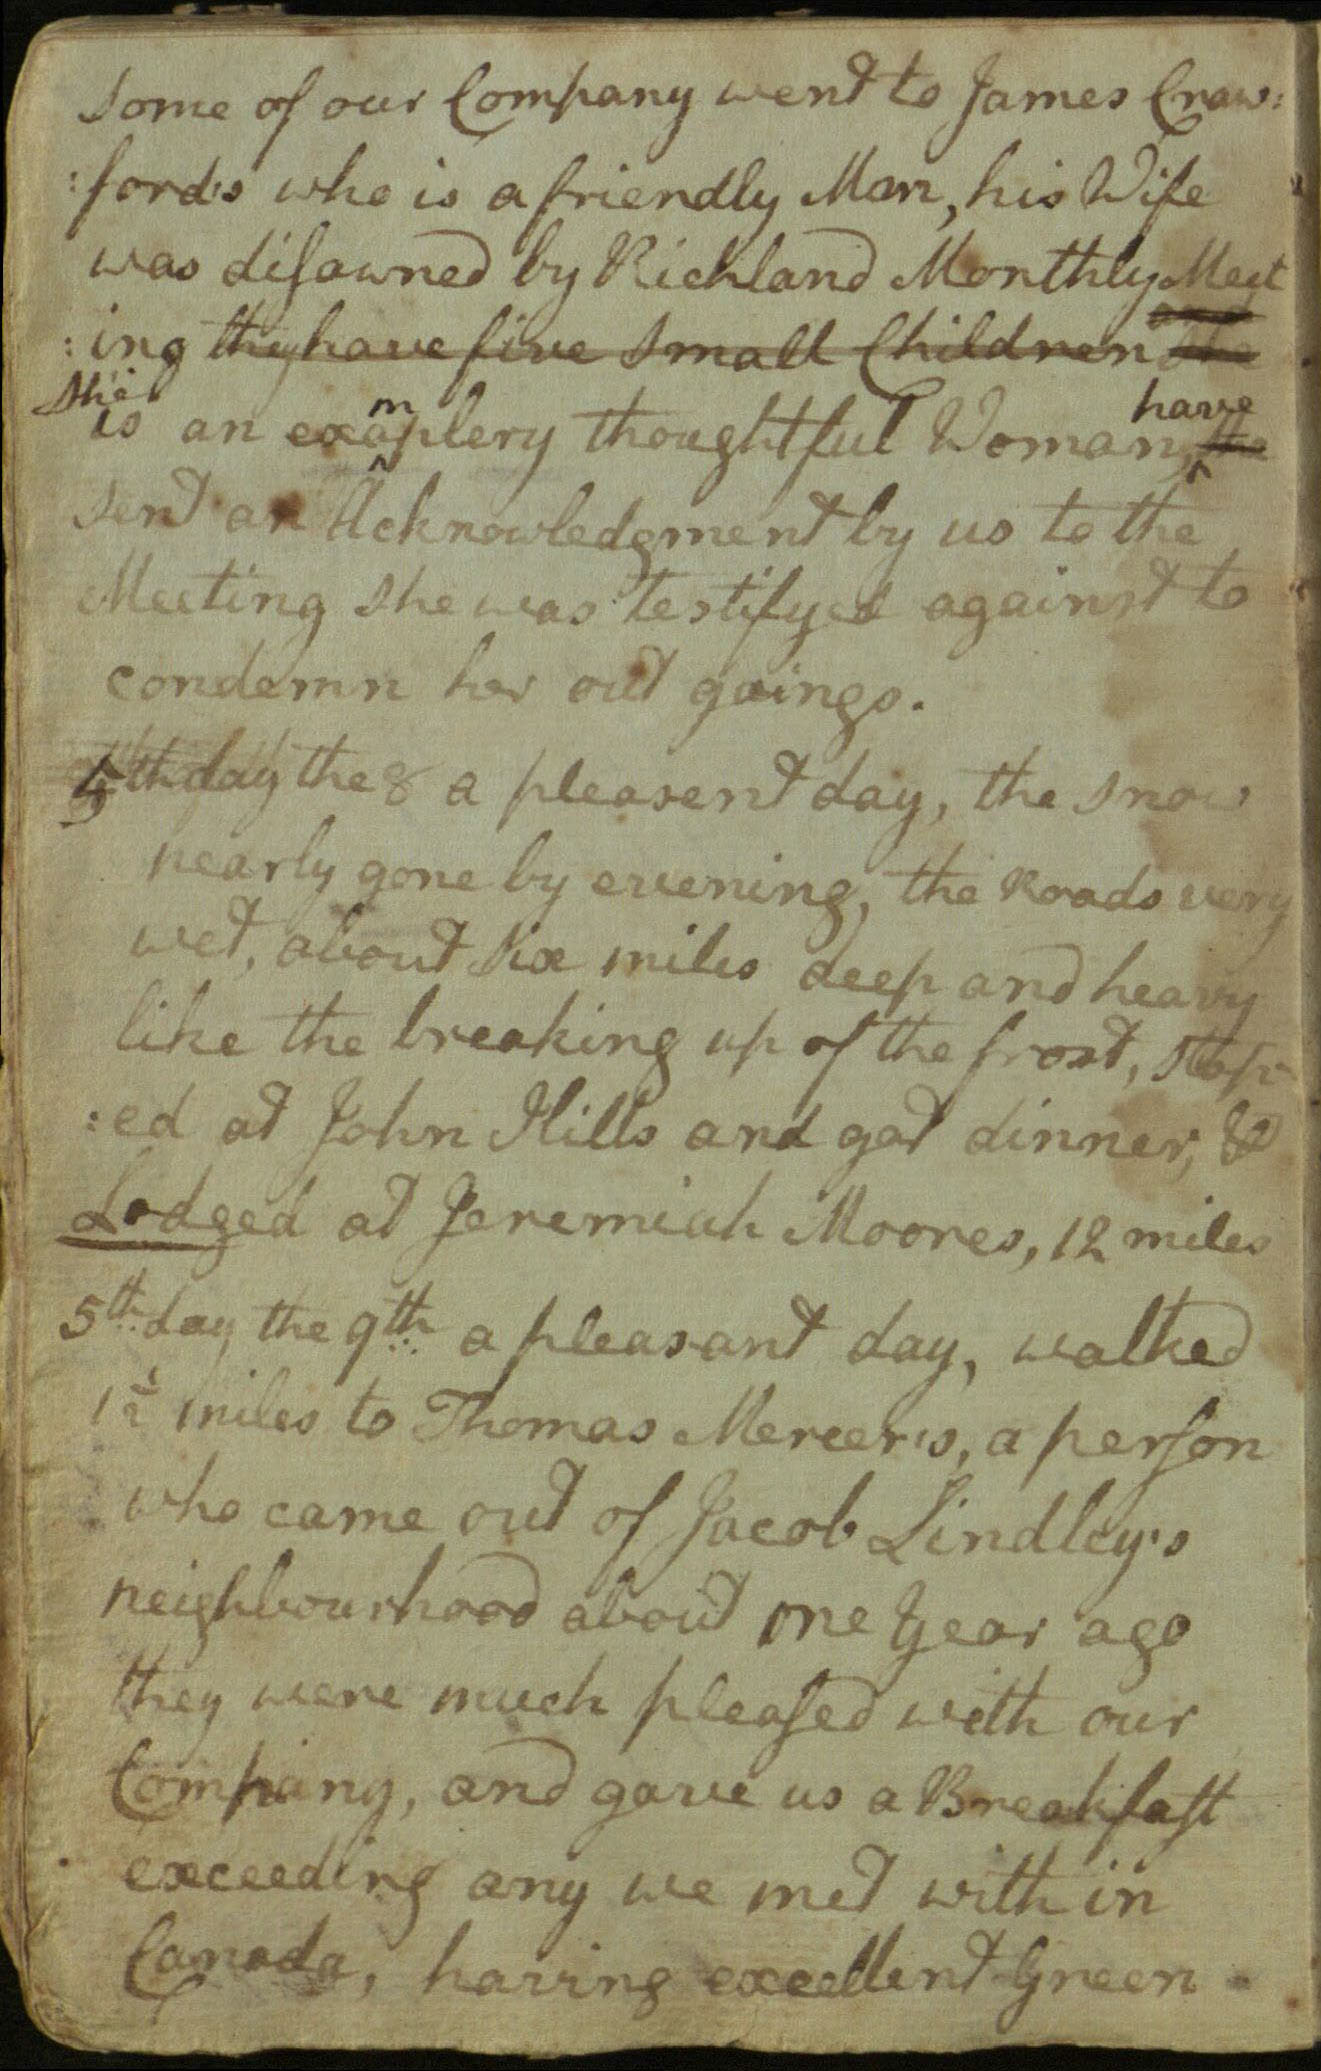 some of our Company went to James Craw:
:ford's who is a friendly Man, his Wife
was disowned by Richland Monthly Meet
and
:ing they have five small Children she
she have
is an examplery thoughtful Woman,
sent an Acknowledgment by us to the
Meeting she was testifyed against to
condemn her out goings.
4th day the 8 a pleasent day, the snow
nearly gone by evening, the Roads very
wet, about six miles deep and heavy
like the breaking up of the frost, stopp
:ed at John Hills and got dinner, &
Lodged at Jeremiah Moores, 12 miles
5th day the 9th a pleasant day, walked
1½ miles to Thomas Mercer's, a person
who came out of Jacob Lindley's
neighbourhood about one year ago
they were much pleased with our
Company, and gave us a Breakfast
exceeding any we met with in
Canada, having excellent Green